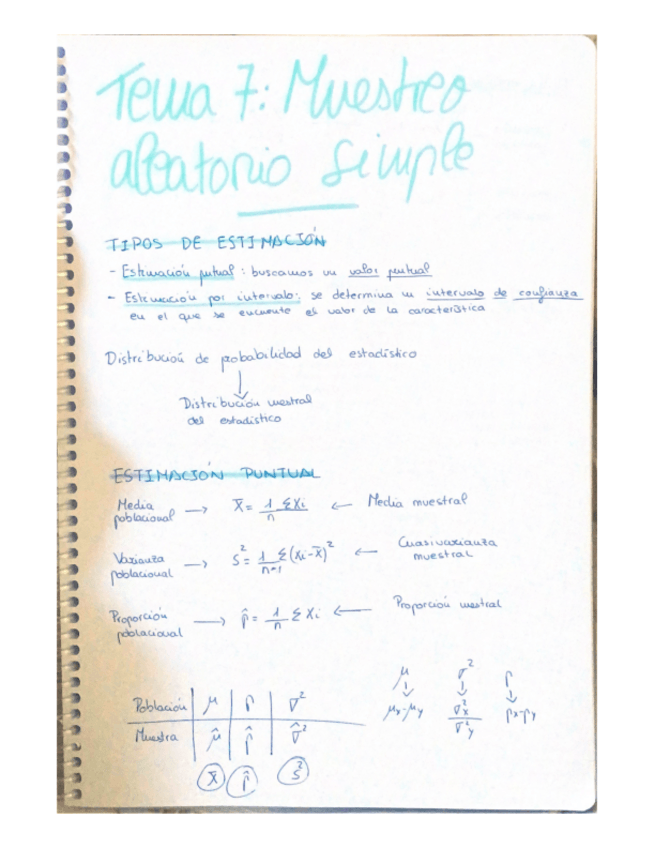 Tema 7: Muestreo
aleatorio simple
TIPOS DE ESTIMACIÓN
- Estimación putual: buscamos un valor puntual
- Estimación por intervalo: se determina un intervalo de confianza
en el que se encuentre el valor de la característica
Distribución de probabilidad del estadístico
↓
Distribución muestral
del estadístico
ESTIMACIÓN PUNTUAL
Media poblacional → X̄ = 1/n ΣXi ← Media muestral
Varianza poblacional → S² = 1/(n-1) Σ(Xi-X̄)² ← Cuasivarianza muestral
Proporción poblacional → p̂ = 1/n ΣXi ← Proporción muestral
μ σ² p
↓ ↓ ↓
μx-μy σ²x/σ²y px-py
Población | μ | p | σ²
Muestra | μ̂ | p̂ | σ̂²
X̄ p̂ S²